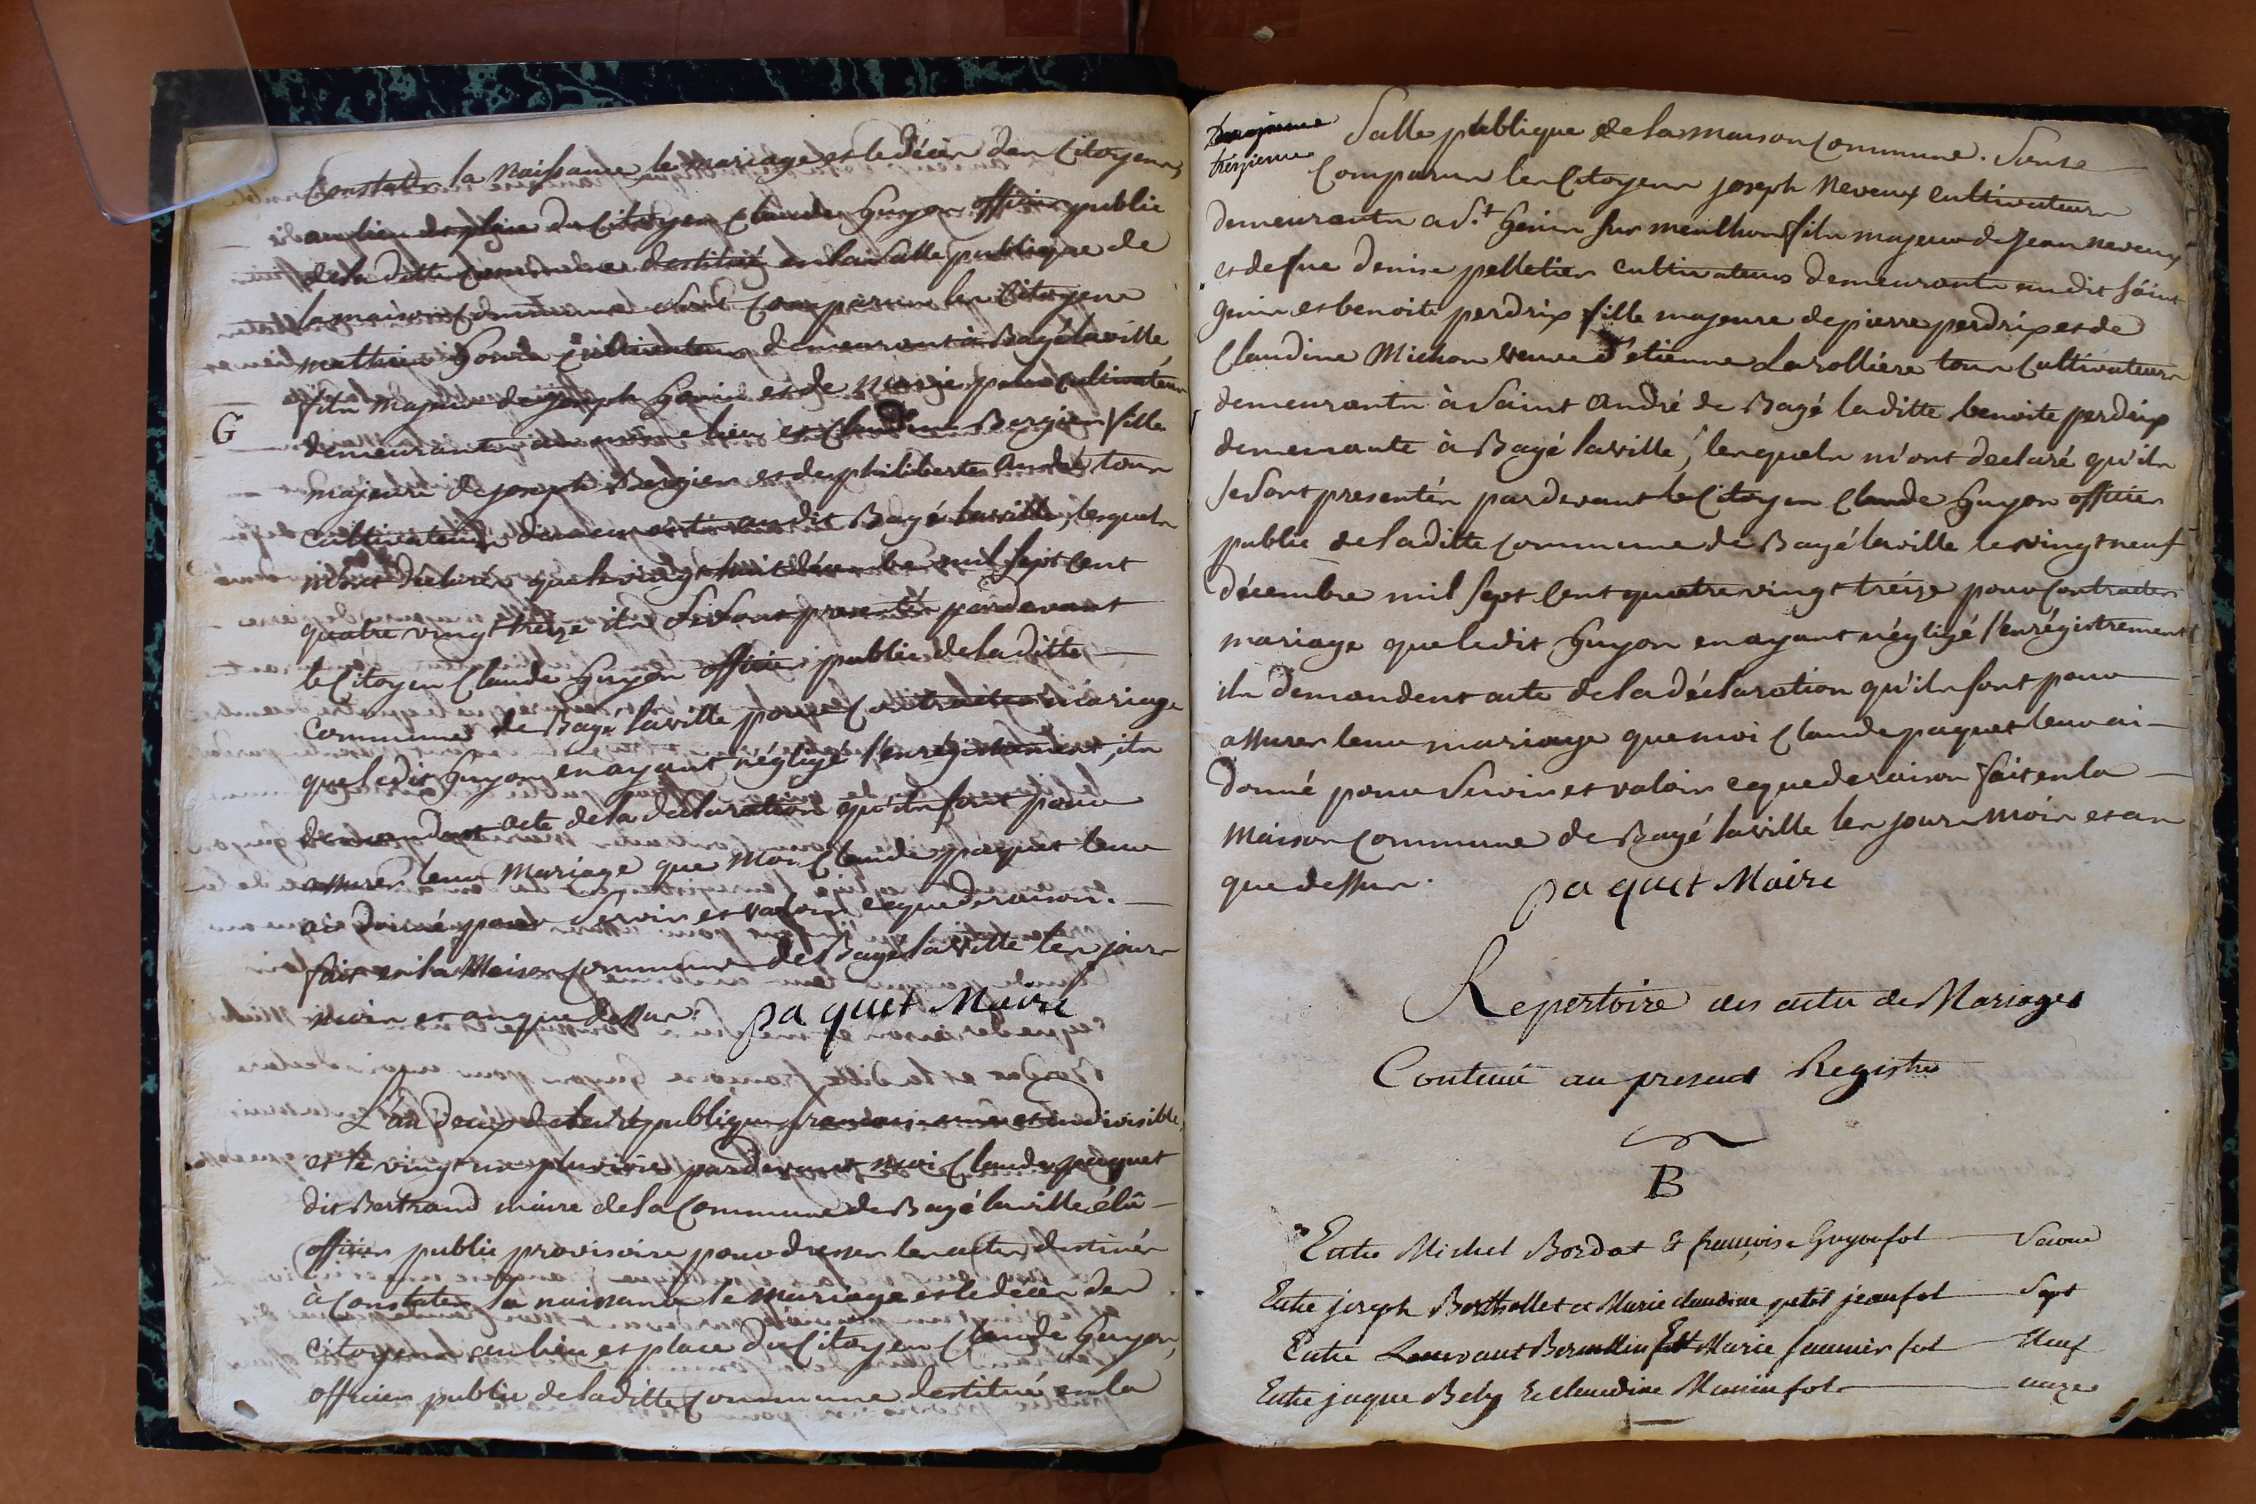 constater la naissance le mariage et le décès des citoyens
au lieu et place du citoyen Claude Guyon officier public
de la ditte commune destitué en la salle publique de
la maison commune sont comparus les citoyens
mathieu cultivateur demeurant à Bagé laville
fils majeur de joseph et de marie cultivateurs
G
demeurants au même lieu et Claudine Bergier fille
majeure de joseph Bergier et de philiberte André tous
cultivateurs demeurants au dit Bagé laville, lesquels
m'ont déclaré que le vingt huit décembre mil sept cent
quatre vingt treize ils se sont presentés pardevant
le Citoyen Claude Guyon officier public de la ditte
Commune de Bagé laville pour contracter mariage
que le dit Guyon en ayant négligé l'enrégistrement, ils
demandent acte de la déclaration qu'ils font pour
assurer leur mariage que moi Claude paquet leur
ai donné pour servir et valoir ce que de raison.
fait en la Maison commune de Bagé laville les jours
mois et an que dessus. paquet Maire
L'an deux de la république francaise une et indivisible,
et le vingt un pluviose pardevant moi Claude paquet
dit Bertrand maire de la Commune de Bagé laville élû
officier public provisoire pour dresser les actes destinés
à constater la naissance le mariage et le décès des
citoyens au lieu et place du Citoyen Claude Guyon,
officier public de la ditte Commune destitué en la
treizieme
Salle publique de la maison commune. Sont
Comparus les Citoyens joseph Neveux cultivateurs
demeurants a St. Genis sur menthon fils majeur de Jean neveux
et de fue denise pelletier cultivateurs demeurants au dit saint
genis et benoite perdrix fille majeure de pierre perdrix et de
Claudine Michon veuve d'etienne Larollière tous cultivateurs
demeurants à Saint André de Bagé la ditte benoite perdrix
demeurante à Bagé laville, lesquels m'ont declaré qu'ils
se sont presentés pardevant le Citoyen Claude Guyon officier
public de la ditte commune de Bagé laville le vingt neuf
décembre mil sept cent quatre vingt treize pour contracter
mariage que le dit Guyon en ayant négligé l'enrégistrement
ils demandent acte de la déclaration qu'ils font pour
assurer leur mariage que moi Claude paquet leur ai
donné pour servir et valoir ce que de raison fait en la
Maison commune de Bagé laville les jours mois et an
que dessus. paquet Maire
Repertoire des actes de Mariages
Contenû au present Registre
B
Entre Michel Bordat & françoise Guyon fol
Entre joseph Berthollet et Marie claudine petit jean fol Sept
Entre & Marie faunier fol Neuf
Entre jaque Bely & claudine Monin fol onze